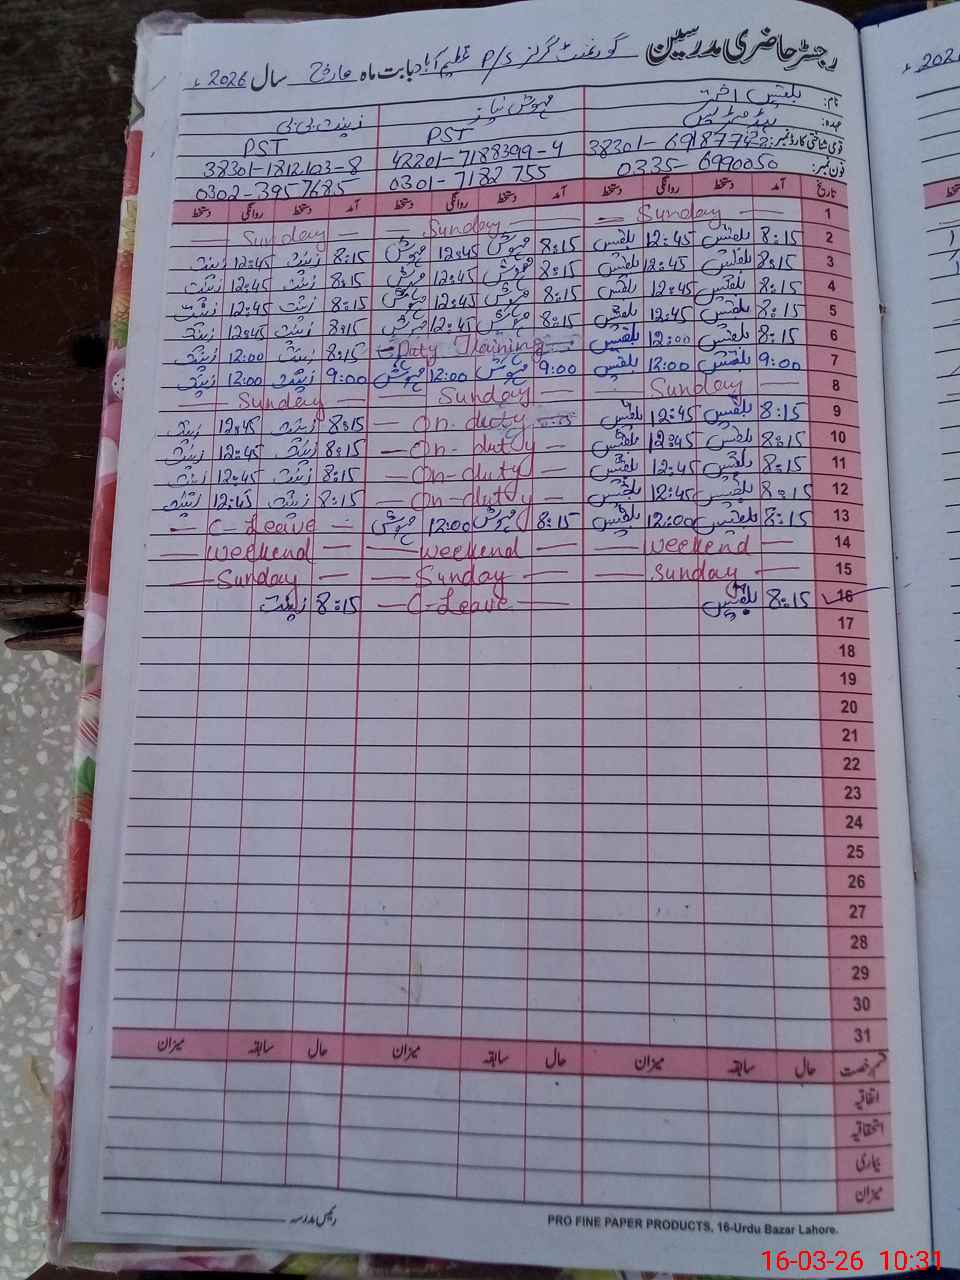 رجسٹر حاضری مدرسین گورنمنٹ گرلز P/S عظیم آباد بابت ماہ مارچ سال 2026ء
نام: بلقیس اختر مہوش نیاز زینت بی بی
عہدہ: ہیڈ مسٹریس PST PST
قومی شناختی کارڈ نمبر: 38301-6918774-2 42201-7188399-4 38301-1812103-8
فون نمبر: 0335-6990050 0301-7182755 0302-3957685
تاریخ آمد دستخط روانگی دستخط آمد دستخط روانگی دستخط آمد دستخط روانگی دستخط
1 — Sunday — — Sunday — — Sunday —
2 8:15 بلقیس 12:45 بلقیس 8:15 مہوش 12:45 مہوش 8:15 زینت 12:45 زینت
3 8:15 بلقیس 12:45 بلقیس 8:15 مہوش 12:45 مہوش 8:15 زینت 12:45 زینت
4 8:15 بلقیس 12:45 بلقیس 8:15 مہوش 12:45 مہوش 8:15 زینت 12:45 زینت
5 8:15 بلقیس 12:45 بلقیس 8:15 مہوش 12:45 مہوش 8:15 زینت 12:45 زینت
6 8:15 بلقیس 12:00 بلقیس — Duty Training — 8:15 زینت 12:00 زینت
7 9:00 بلقیس 12:00 بلقیس 9:00 مہوش 12:00 مہوش 9:00 زینت 12:00 زینت
8 — Sunday — — Sunday — — Sunday —
9 8:15 بلقیس 12:45 بلقیس — On-duty — 8:15 زینت 12:45 زینت
10 8:15 بلقیس 12:45 بلقیس — On-duty — 8:15 زینت 12:45 زینت
11 8:15 بلقیس 12:45 بلقیس — On-duty — 8:15 زینت 12:45 زینت
12 8:15 بلقیس 12:45 بلقیس — On-duty — 8:15 زینت 12:45 زینت
13 8:15 بلقیس 12:00 بلقیس 8:15 مہوش 12:00 مہوش — C-Leave —
14 — Weekend — — Weekend — — Weekend —
15 — Sunday — — Sunday — — Sunday —
16 8:15 بلقیس — C-Leave — 8:15 زینت
17
18
19
20
21
22
23
24
25
26
27
28
29
30
31
قسم رخصت حال سابقہ میزان حال سابقہ میزان حال سابقہ میزان
اتفاقیہ
استحقاقیہ
بیماری
میزان
رئیس مدرسہ
PRO FINE PAPER PRODUCTS, 16-Urdu Bazar Lahore.
16-03-26 10:31